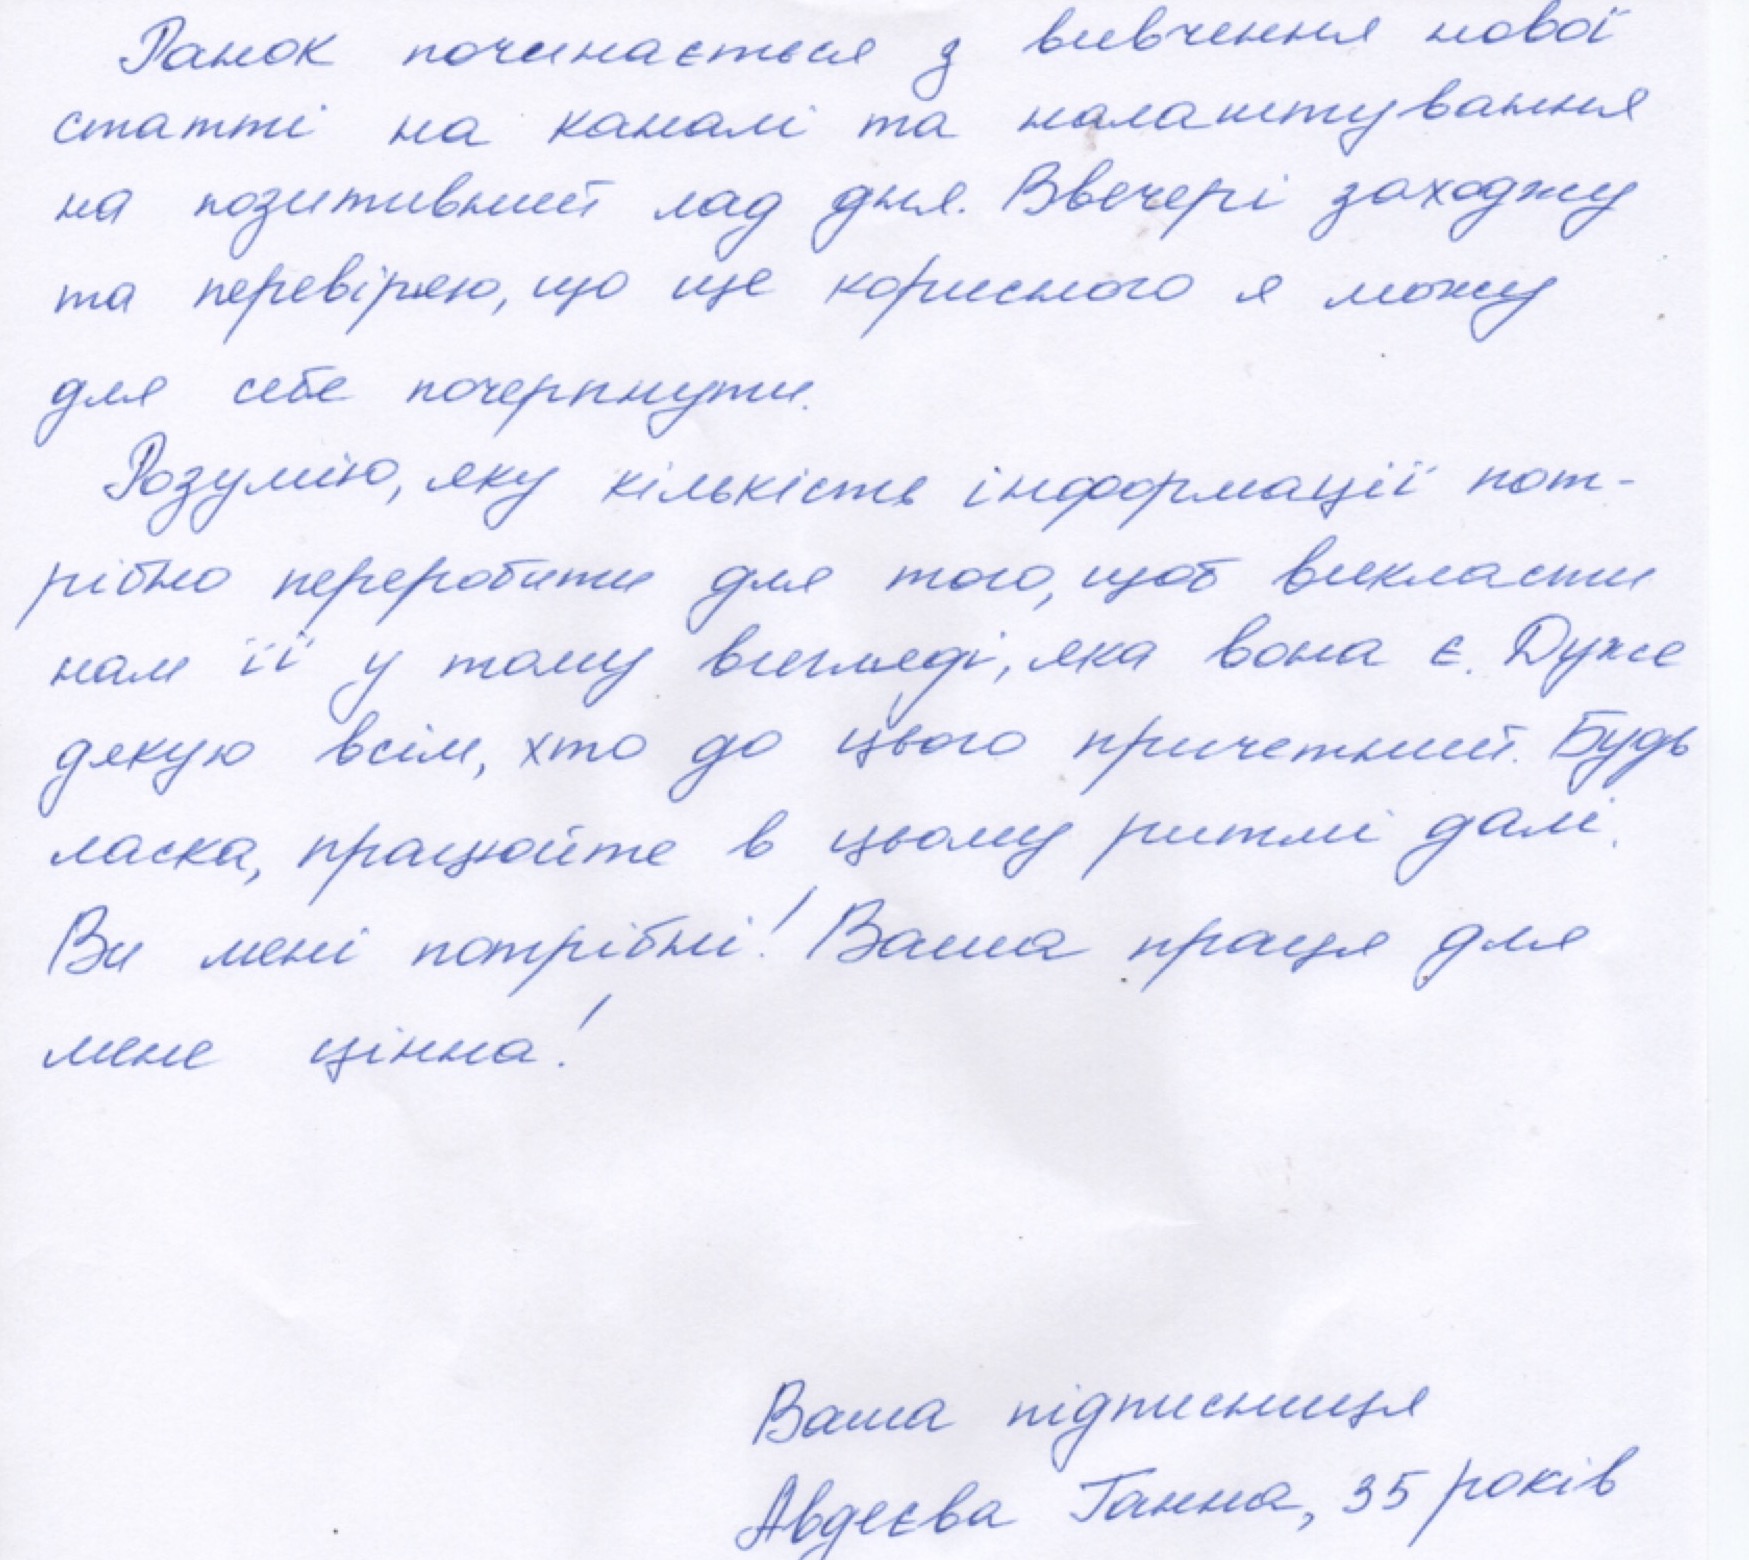 Ранок починається з вивчення нової
статті на каналі та налаштування
на позитивний лад дня. Ввечері заходжу
та перевіряю, що ще корисного я можу
для себе почерпнути.
Розумію, яку кількість інформації пот-
рібно переробити для того, щоб викласти
нам її у тому вигляді, яка вона є. Дуже
дякую всім, хто до цього причетний. Будь
ласка, працюйте в цьому ритмі далі.
Ви мені потрібні! Ваша праця для
мене цінна!
Ваша підписниця
Авдеєва Ганна, 35 років